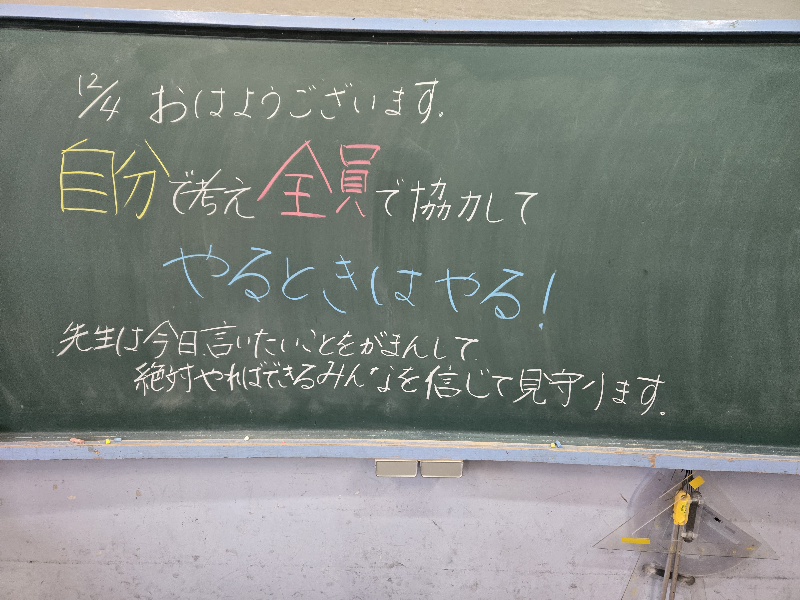 12/4 おはようございます。
自分で考え全員で協力して
やるときはやる!
先生は今日、言いたいことをがまんして
絶対やればできるみんなを信じて見守ります。